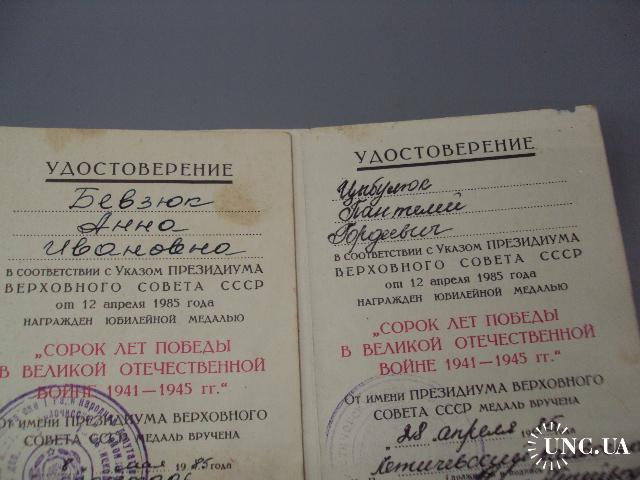 УДОСТОВЕРЕНИЕ
Бевзюк
Анна
Ивановна
в соответствии с Указом ПРЕЗИДИУМА
ВЕРХОВНОГО СОВЕТА СССР
от 12 апреля 1985 года
НАГРАЖДЕН ЮБИЛЕЙНОЙ МЕДАЛЬЮ
„СОРОК ЛЕТ ПОБЕДЫ
В ВЕЛИКОЙ ОТЕЧЕСТВЕННОЙ
ВОЙНЕ 1941—1945 гг.“
От имени ПРЕЗИДИУМА ВЕРХОВНОГО
СОВЕТА СССР МЕДАЛЬ ВРУЧЕНА
8 мая 1985 года
УДОСТОВЕРЕНИЕ
Цыбулюк
Пантелей
Гордеевич
в соответствии с Указом ПРЕЗИДИУМА
ВЕРХОВНОГО СОВЕТА СССР
от 12 апреля 1985 года
НАГРАЖДЕН ЮБИЛЕЙНОЙ МЕДАЛЬЮ
„СОРОК ЛЕТ ПОБЕДЫ
В ВЕЛИКОЙ ОТЕЧЕСТВЕННОЙ
ВОЙНЕ 1941—1945 гг.“
От имени ПРЕЗИДИУМА ВЕРХОВНОГО
СОВЕТА СССР МЕДАЛЬ ВРУЧЕНА
"28 апреля 1985
UNC.UA